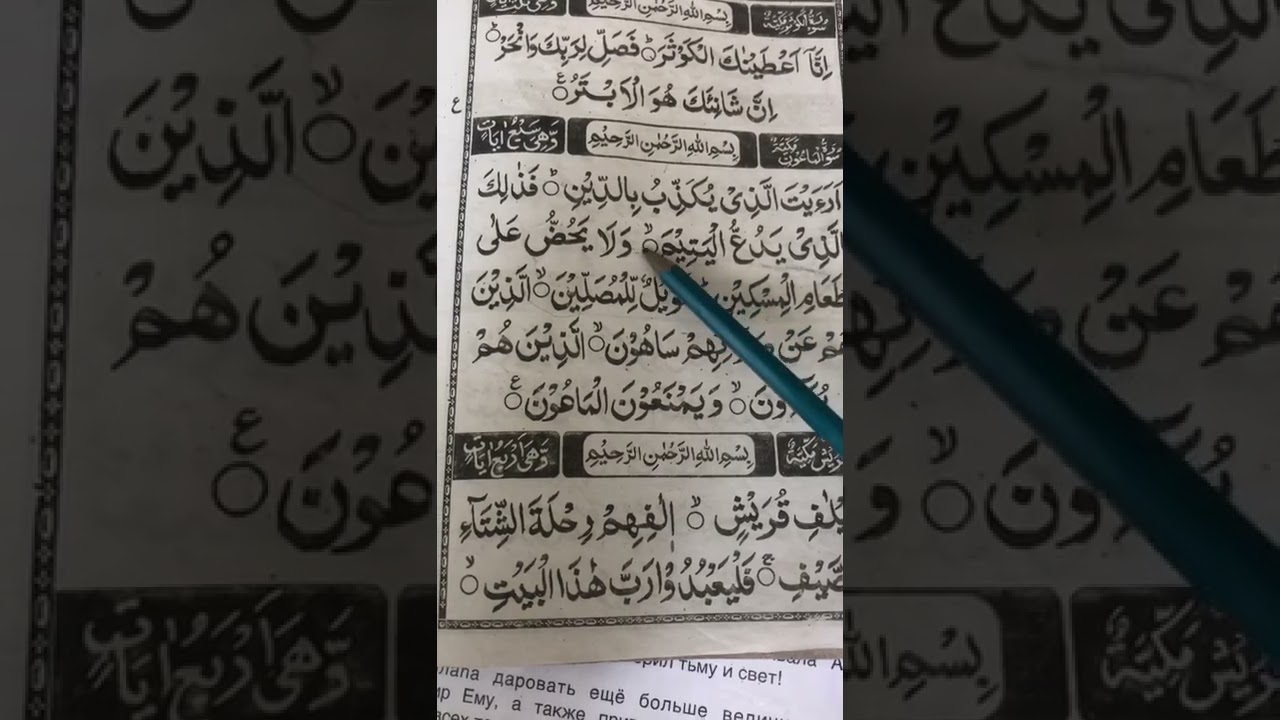 سُوْرَةُ الْكَوْثَرِ مَكِّيَّةٌ بِسْمِ اللهِ الرَّحْمٰنِ الرَّحِيْمِ
اِنَّآ اَعْطَيْنٰكَ الْكَوْثَرَ ؕ فَصَلِّ لِرَبِّكَ وَانْحَرْ ؕ
اِنَّ شَانِئَكَ هُوَ الْاَبْتَرُ ع
سُوْرَةُ الْمَاعُوْنَ مَكِّيَّةٌ بِسْمِ اللهِ الرَّحْمٰنِ الرَّحِيْمِ وَّهِيَ سَبْعُ اٰيَاتٍ
اَرَءَيْتَ الَّذِىْ يُكَذِّبُ بِالدِّيْنِ ؕ فَذٰلِكَ
الَّذِىْ يَدُعُّ الْيَتِيْمَ ۙ وَلَا يَحُضُّ عَلٰى
طَعَامِ الْمِسْكِيْنِ ؕ فَوَيْلٌ لِّلْمُصَلِّيْنَ ۙ الَّذِيْنَ
هُمْ عَنْ سَاهُوْنَ ۙ الَّذِيْنَ هُمْ
وَيَمْنَعُوْنَ الْمَاعُوْنَ ع
مَكِّيَّةٌ بِسْمِ اللهِ الرَّحْمٰنِ الرَّحِيْمِ وَّهِيَ اَرْبَعُ اٰيَاتٍ
يْلٰفِ قُرَيْشٍ ۙ اٖلٰفِهِمْ رِحْلَةَ الشِّتَآءِ
الصَّيْفِ ۚ فَلْيَعْبُدُوْا رَبَّ هٰذَا الْبَيْتِ ۙ
тьму и свет!
даровать ещё больше
Ему, а также